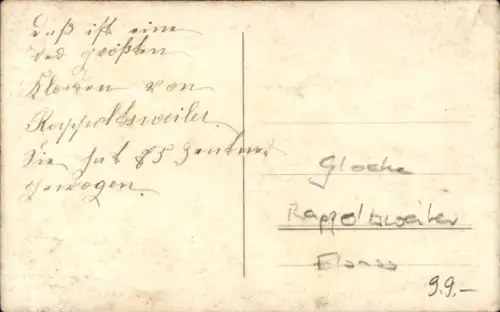 Daß ist eine
der größten
Glocken von
Rappoltsweiler.
Sie hat 85 Zentner
gewogen.
Glocke
Rappoltsweiler
Elsass
99.-